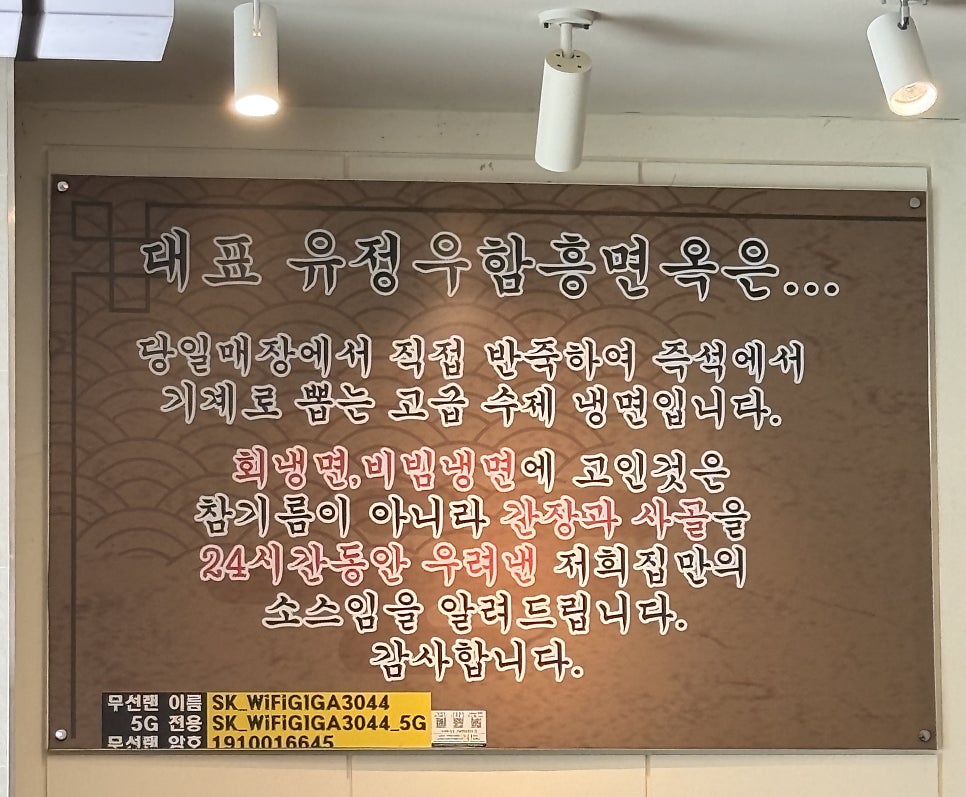 대표 유정우함흥면옥은...
당일매장에서 직접 반죽하여 즉석에서
기계로 뽑는 고급 수제 냉면입니다.
회냉면,비빔냉면에 고인것은
참기름이 아니라 간장과 사골을
24세간동안 우려낸 저희집만의
소스임을 알려드립니다.
감사합니다.
무선랜 이름 SK_WiFiGIGA3044
5G 전용 SK_WiFiGIGA3044_5G
무선랜 암호 1910016645